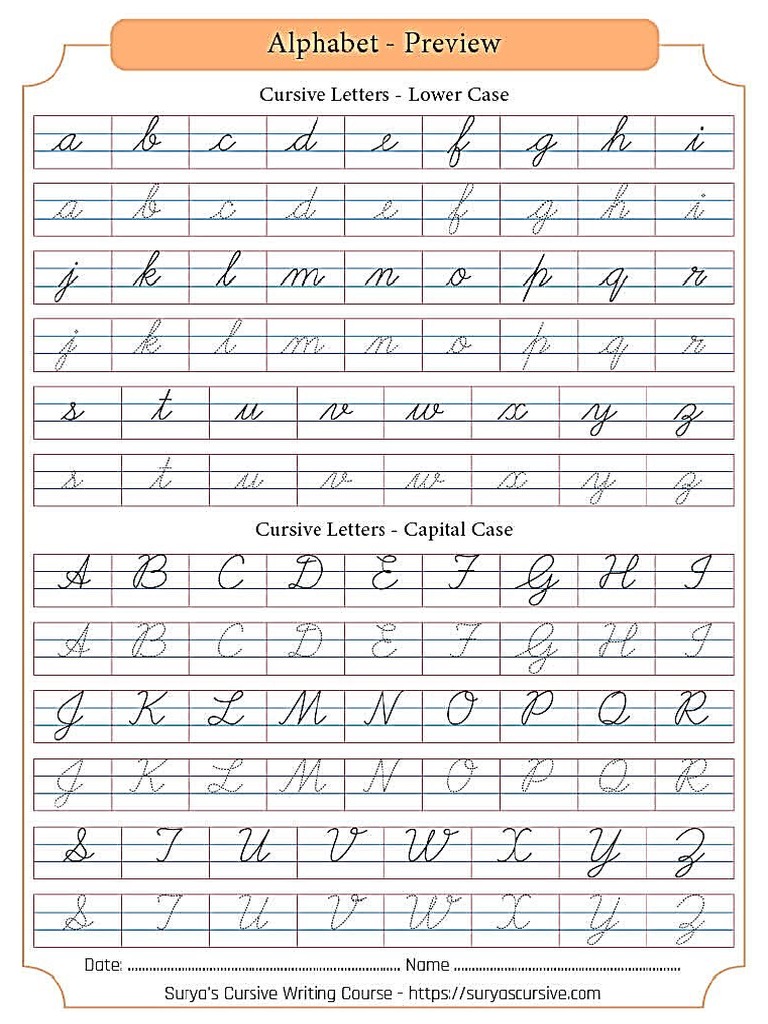 Alphabet - Preview
Cursive Letters - Lower Case
a b c d e f g h i
a b c d e f g h i
j k l m n o p q r
j k l m n o p q r
s t u v w x y z
s t u v w x y z
Cursive Letters - Capital Case
A B C D E F G H I
A B C D E F G H I
J K L M N O P Q R
J K L M N O P Q R
S T U V W X Y Z
S T U V W X Y Z
Date: ........................................ Name ........................................
Surya's Cursive Writing Course - https://suryascursive.com